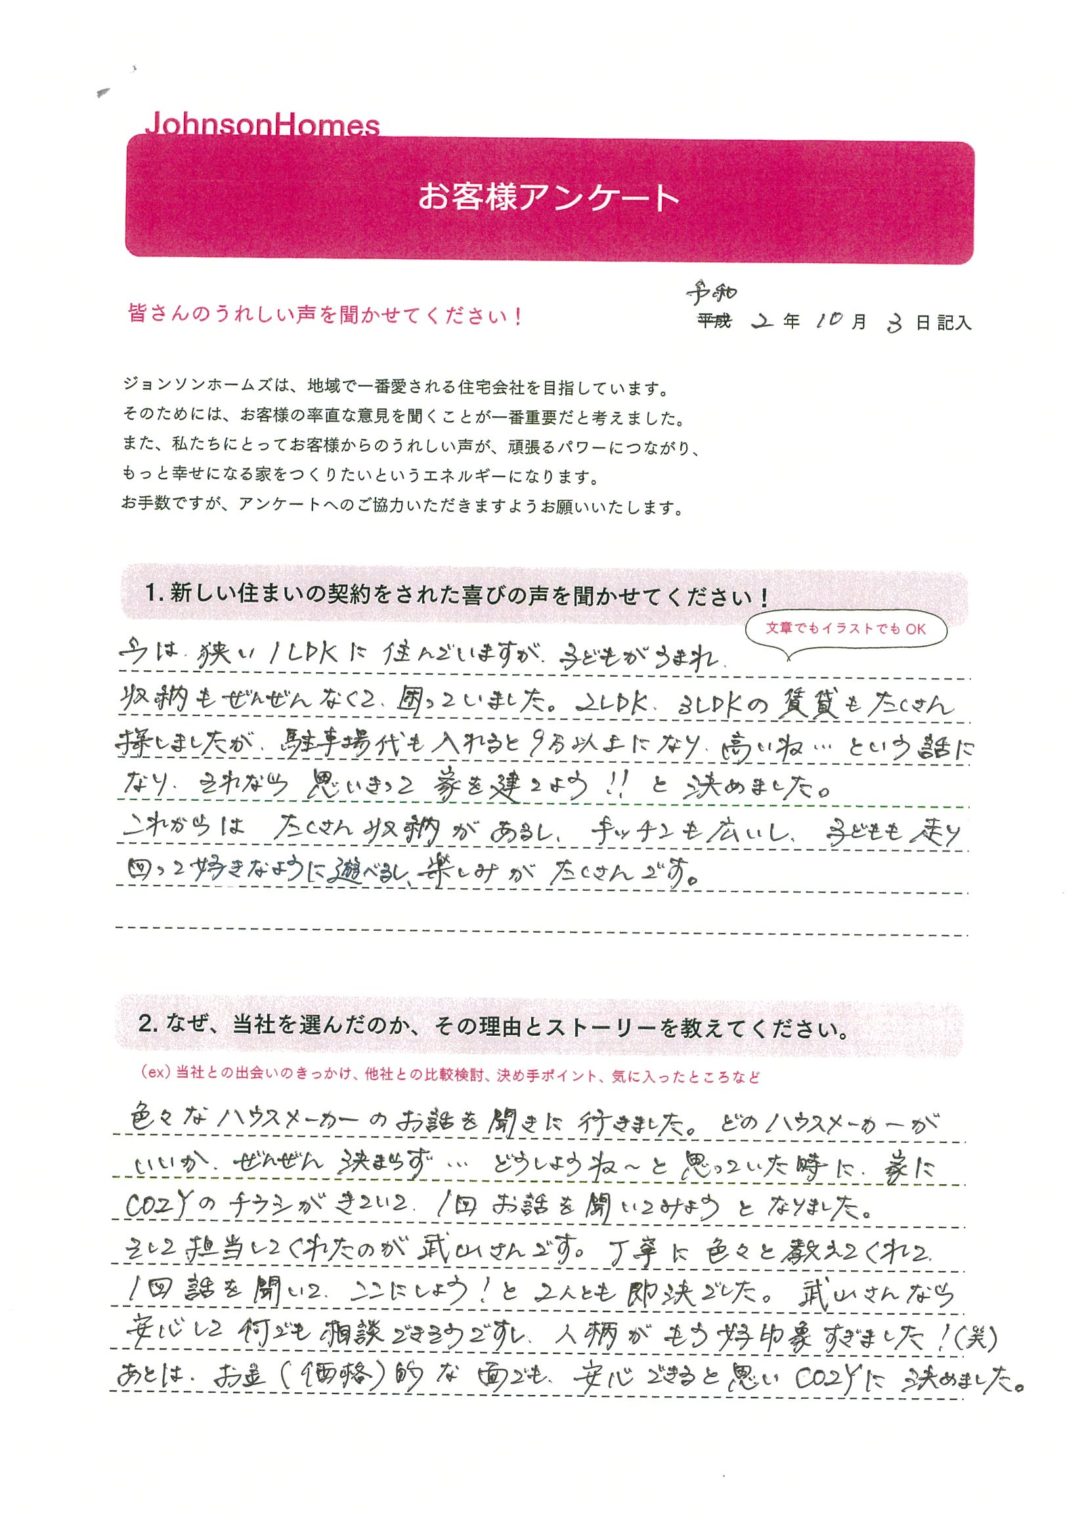 JohnsonHomes
お客様アンケート
皆さんのうれしい声を聞かせてください！
令和
平成 2 年 10 月 3 日記入
ジョンソンホームズは、地域で一番愛される住宅会社を目指しています。
そのためには、お客様の率直な意見を聞くことが一番重要だと考えました。
また、私たちにとってお客様からのうれしい声が、頑張るパワーにつながり、
もっと幸せになる家をつくりたいというエネルギーになります。
お手数ですが、アンケートへのご協力いただきますようお願いいたします。
1. 新しい住まいの契約をされた喜びの声を聞かせてください！
文章でもイラストでも OK
今は、狭い1LDKに住んでいますが、子どもがうまれ、
収納もぜんぜんなくて、困っていました。2LDK、3LDKの賃貸もたくさん
探しましたが、駐車場代も入れると9万以上になり、高いね…という話に
なり、それなら思いきって家を建てよう!!と決めました。
これからはたくさん収納があるし、キッチンも広いし、子どもも走り
回って好きなように遊べるし、楽しみがたくさんです。
2. なぜ、当社を選んだのか、その理由とストーリーを教えてください。
（ex）当社との出会いのきっかけ、他社との比較検討、決め手ポイント、気に入ったところなど
色々なハウスメーカーのお話を聞きに行きました。どのハウスメーカーが
いいか、ぜんぜん決まらず…どうしようね〜と思っていた時に、家に
COZYのチラシがきていて、1回お話を聞いてみようとなりました。
そして担当してくれたのが武山さんです。丁寧に色々と教えてくれて、
1回話を聞いて、ここにしよう！と2人とも即決でした。武山さんなら
安心して何でも相談できそうですし、人柄がもう好印象すぎました！（笑）
あとは、お金（価格）的な面でも、安心できると思いCOZYに決めました。